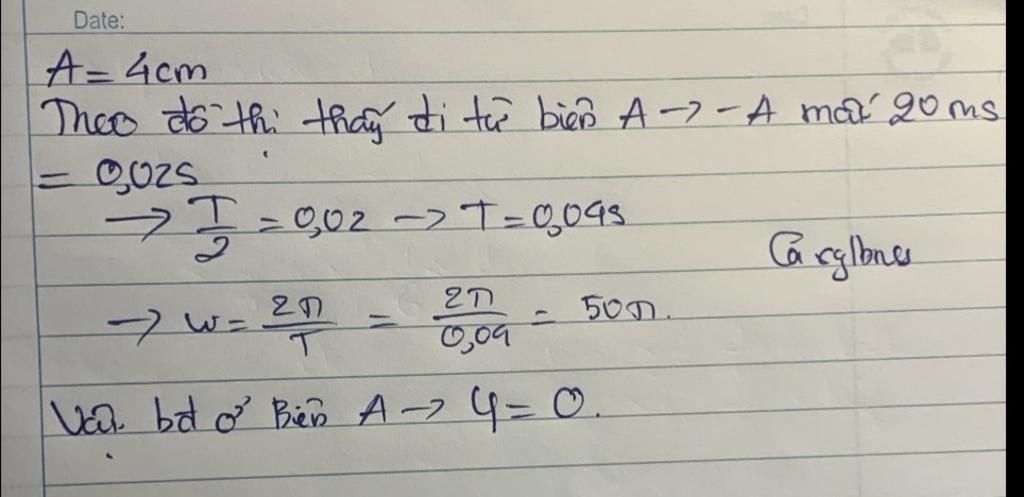 Date:
A = 4cm
Theo đồ thị thấy đi từ biên A → -A mất 20 ms
= 0,02s
→ T/2 = 0,02 → T = 0,04s
→ w = 2π/T = 2π/0,04 = 50π.
Vật bd ở Biên A → φ = 0.